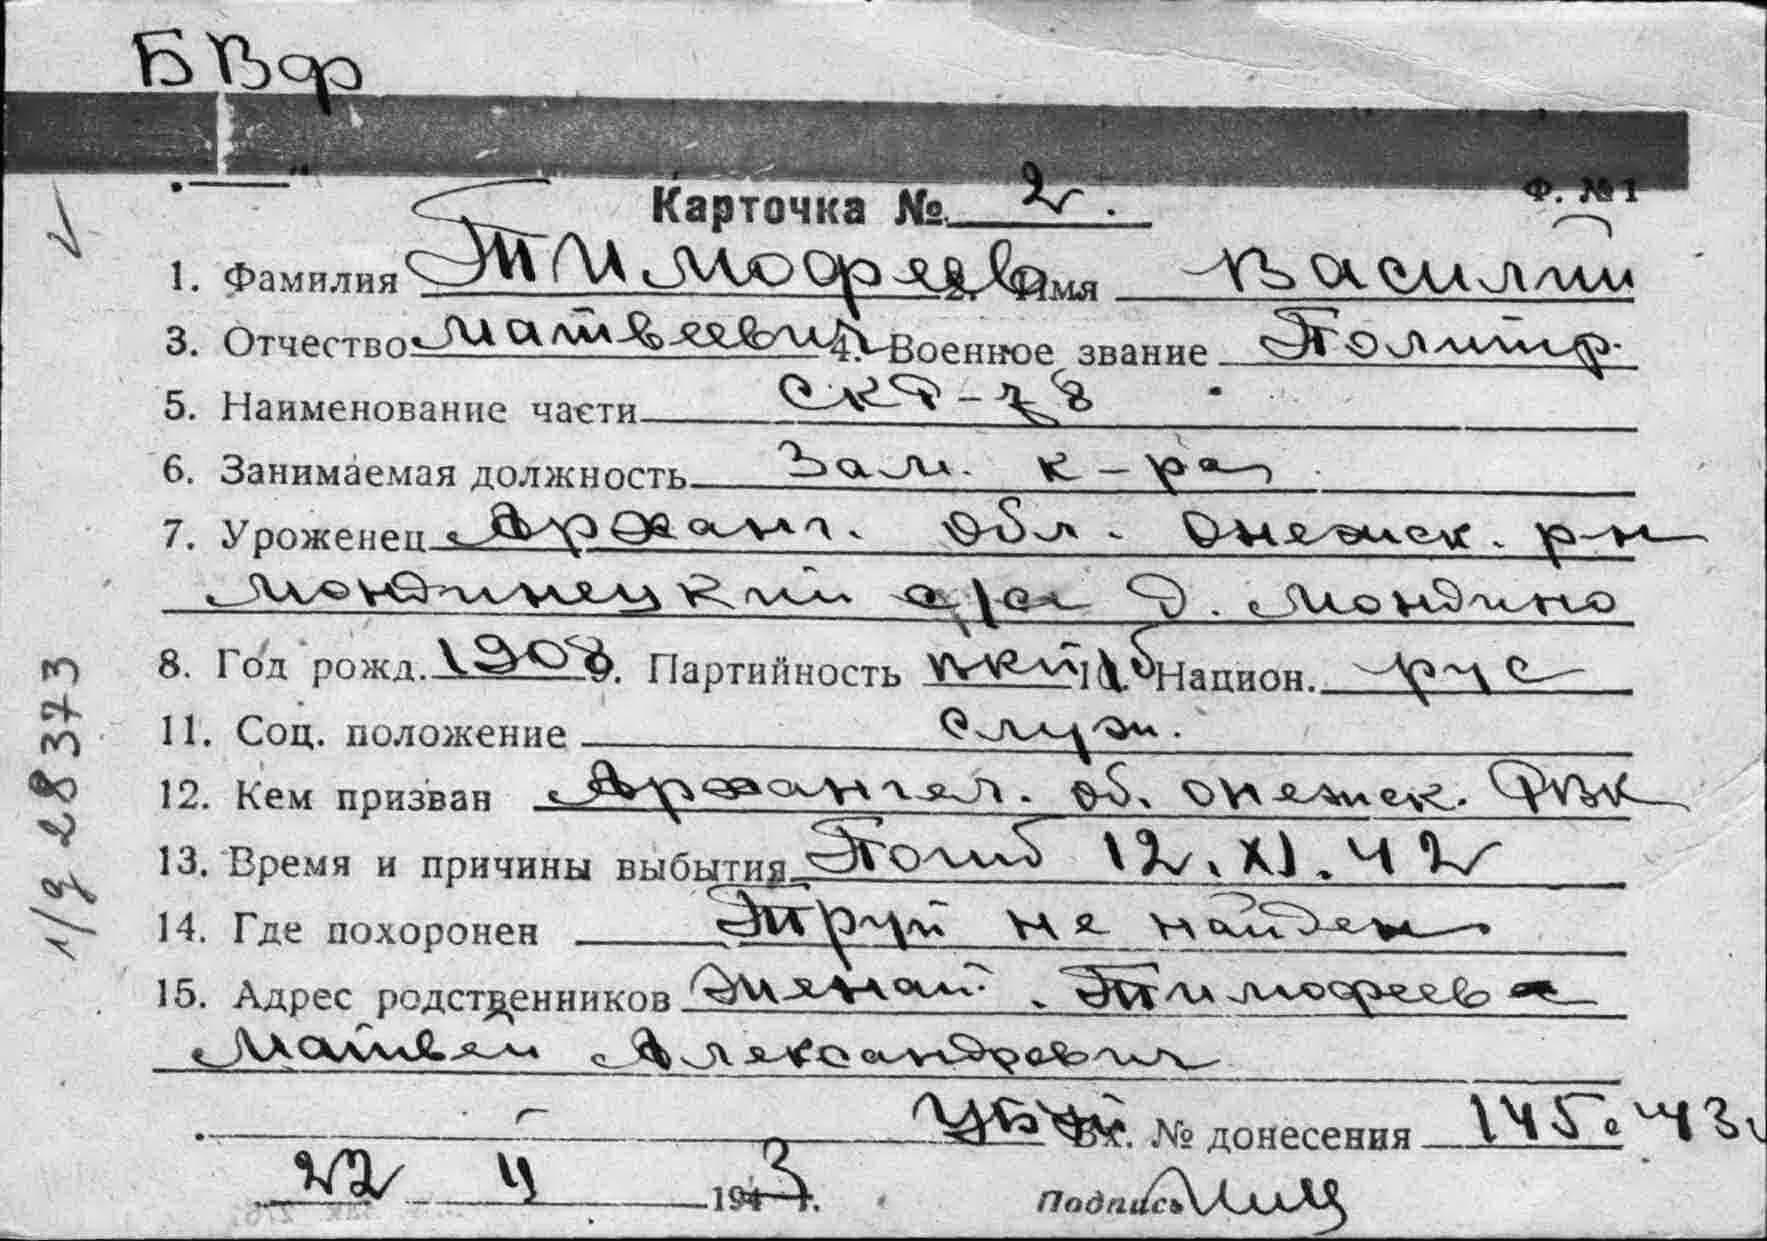 БВФ
Карточка № 2. Ф. № 1
1. Фамилия Тимофеев 2. Имя Василий
3. Отчество Матвеевич 4. Военное звание Политр.
5. Наименование части СКР-78
6. Занимаемая должность Зам. к-ра
7. Уроженец Арханг. обл. Онежск. р-н
Мондинецкий с/с д. Мондино
8. Год рожд. 1908 9. Партийность вкпб Национ. рус
11. Соц. положение служ.
12. Кем призван Архангел. об. Онежск. РВК
13. Время и причины выбытия Погиб 12.XI.42
14. Где похоронен Труп не найден
15. Адрес родственников Тимофеев
Матвей Александрович
Вх. № донесения 145с 43г
22 4 1943 г. Подпись
28373